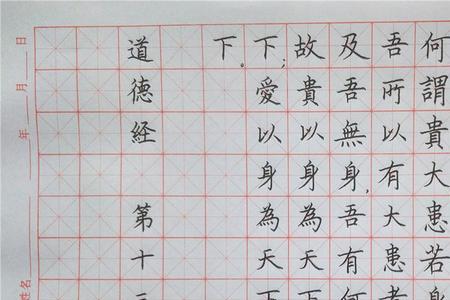 何謂貴大患若身
吾所以有大患者
及吾無身，吾有何
故貴以身為天下
下；愛以身為天下
下。
道德経 第十三
姓名 年 月 日